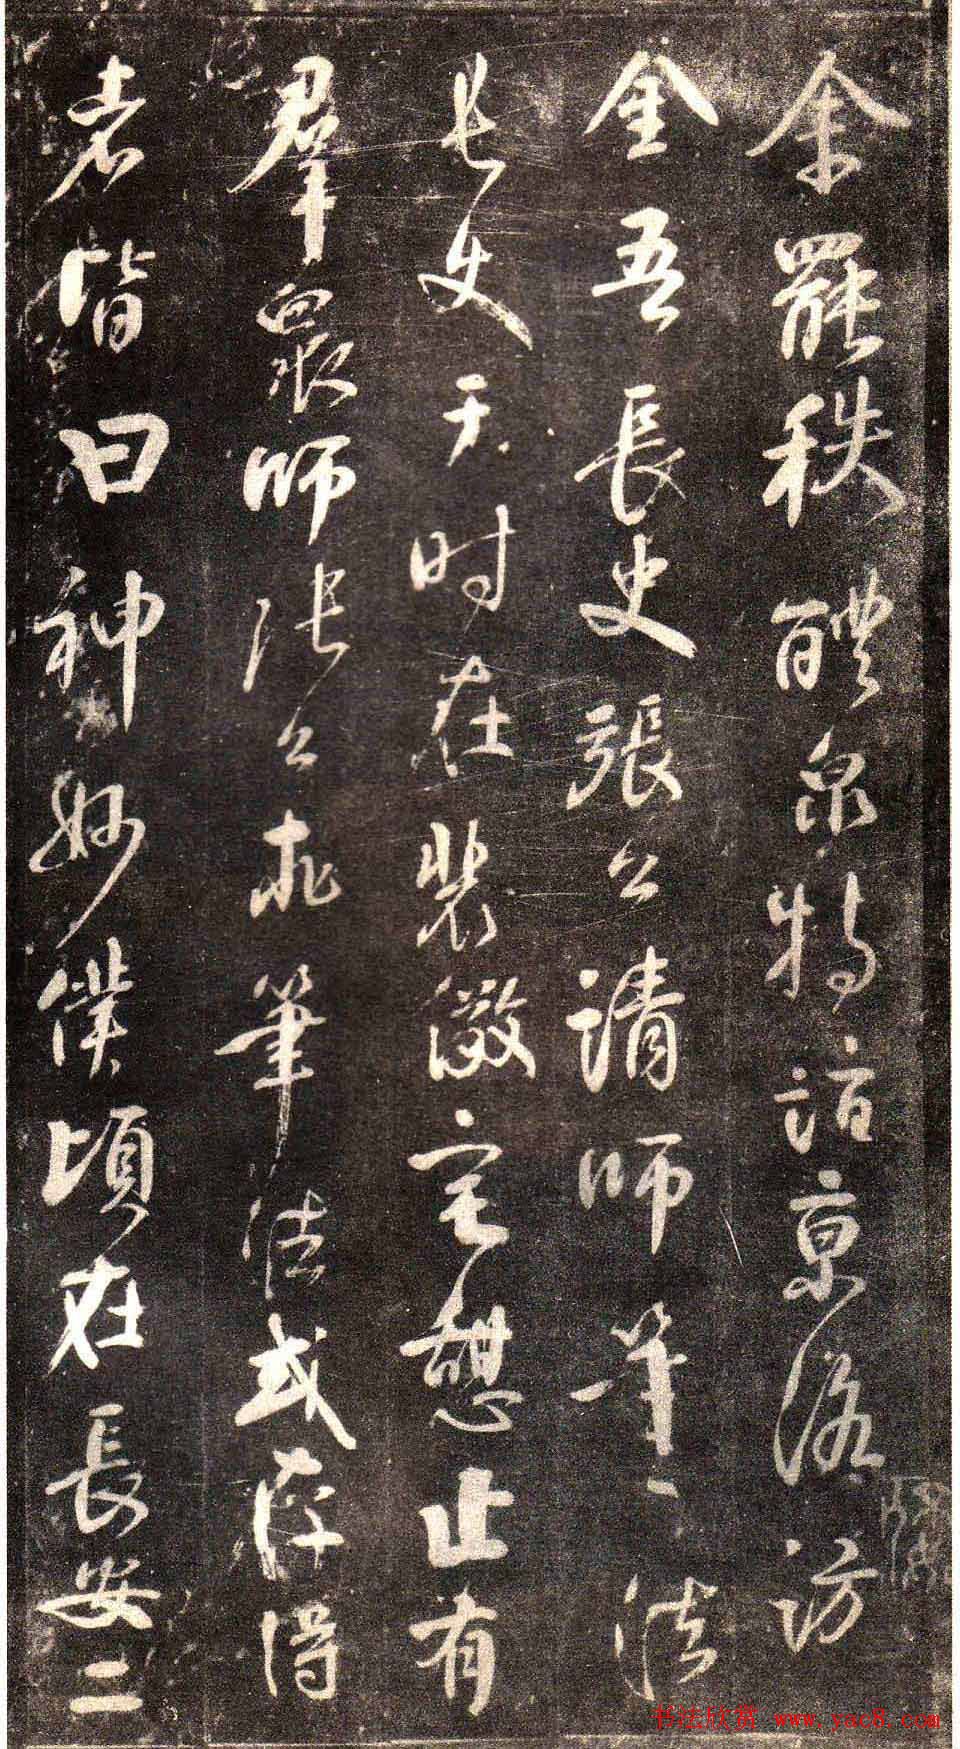 余罷秩醴泉特詣京洛訪
金吾長史張公請師筆法
長史于時在裴儆宅憩止有
羣眾師張公求筆法或存得
者皆曰神妙僕頃在長安二
书法欣赏 www.yac8.com